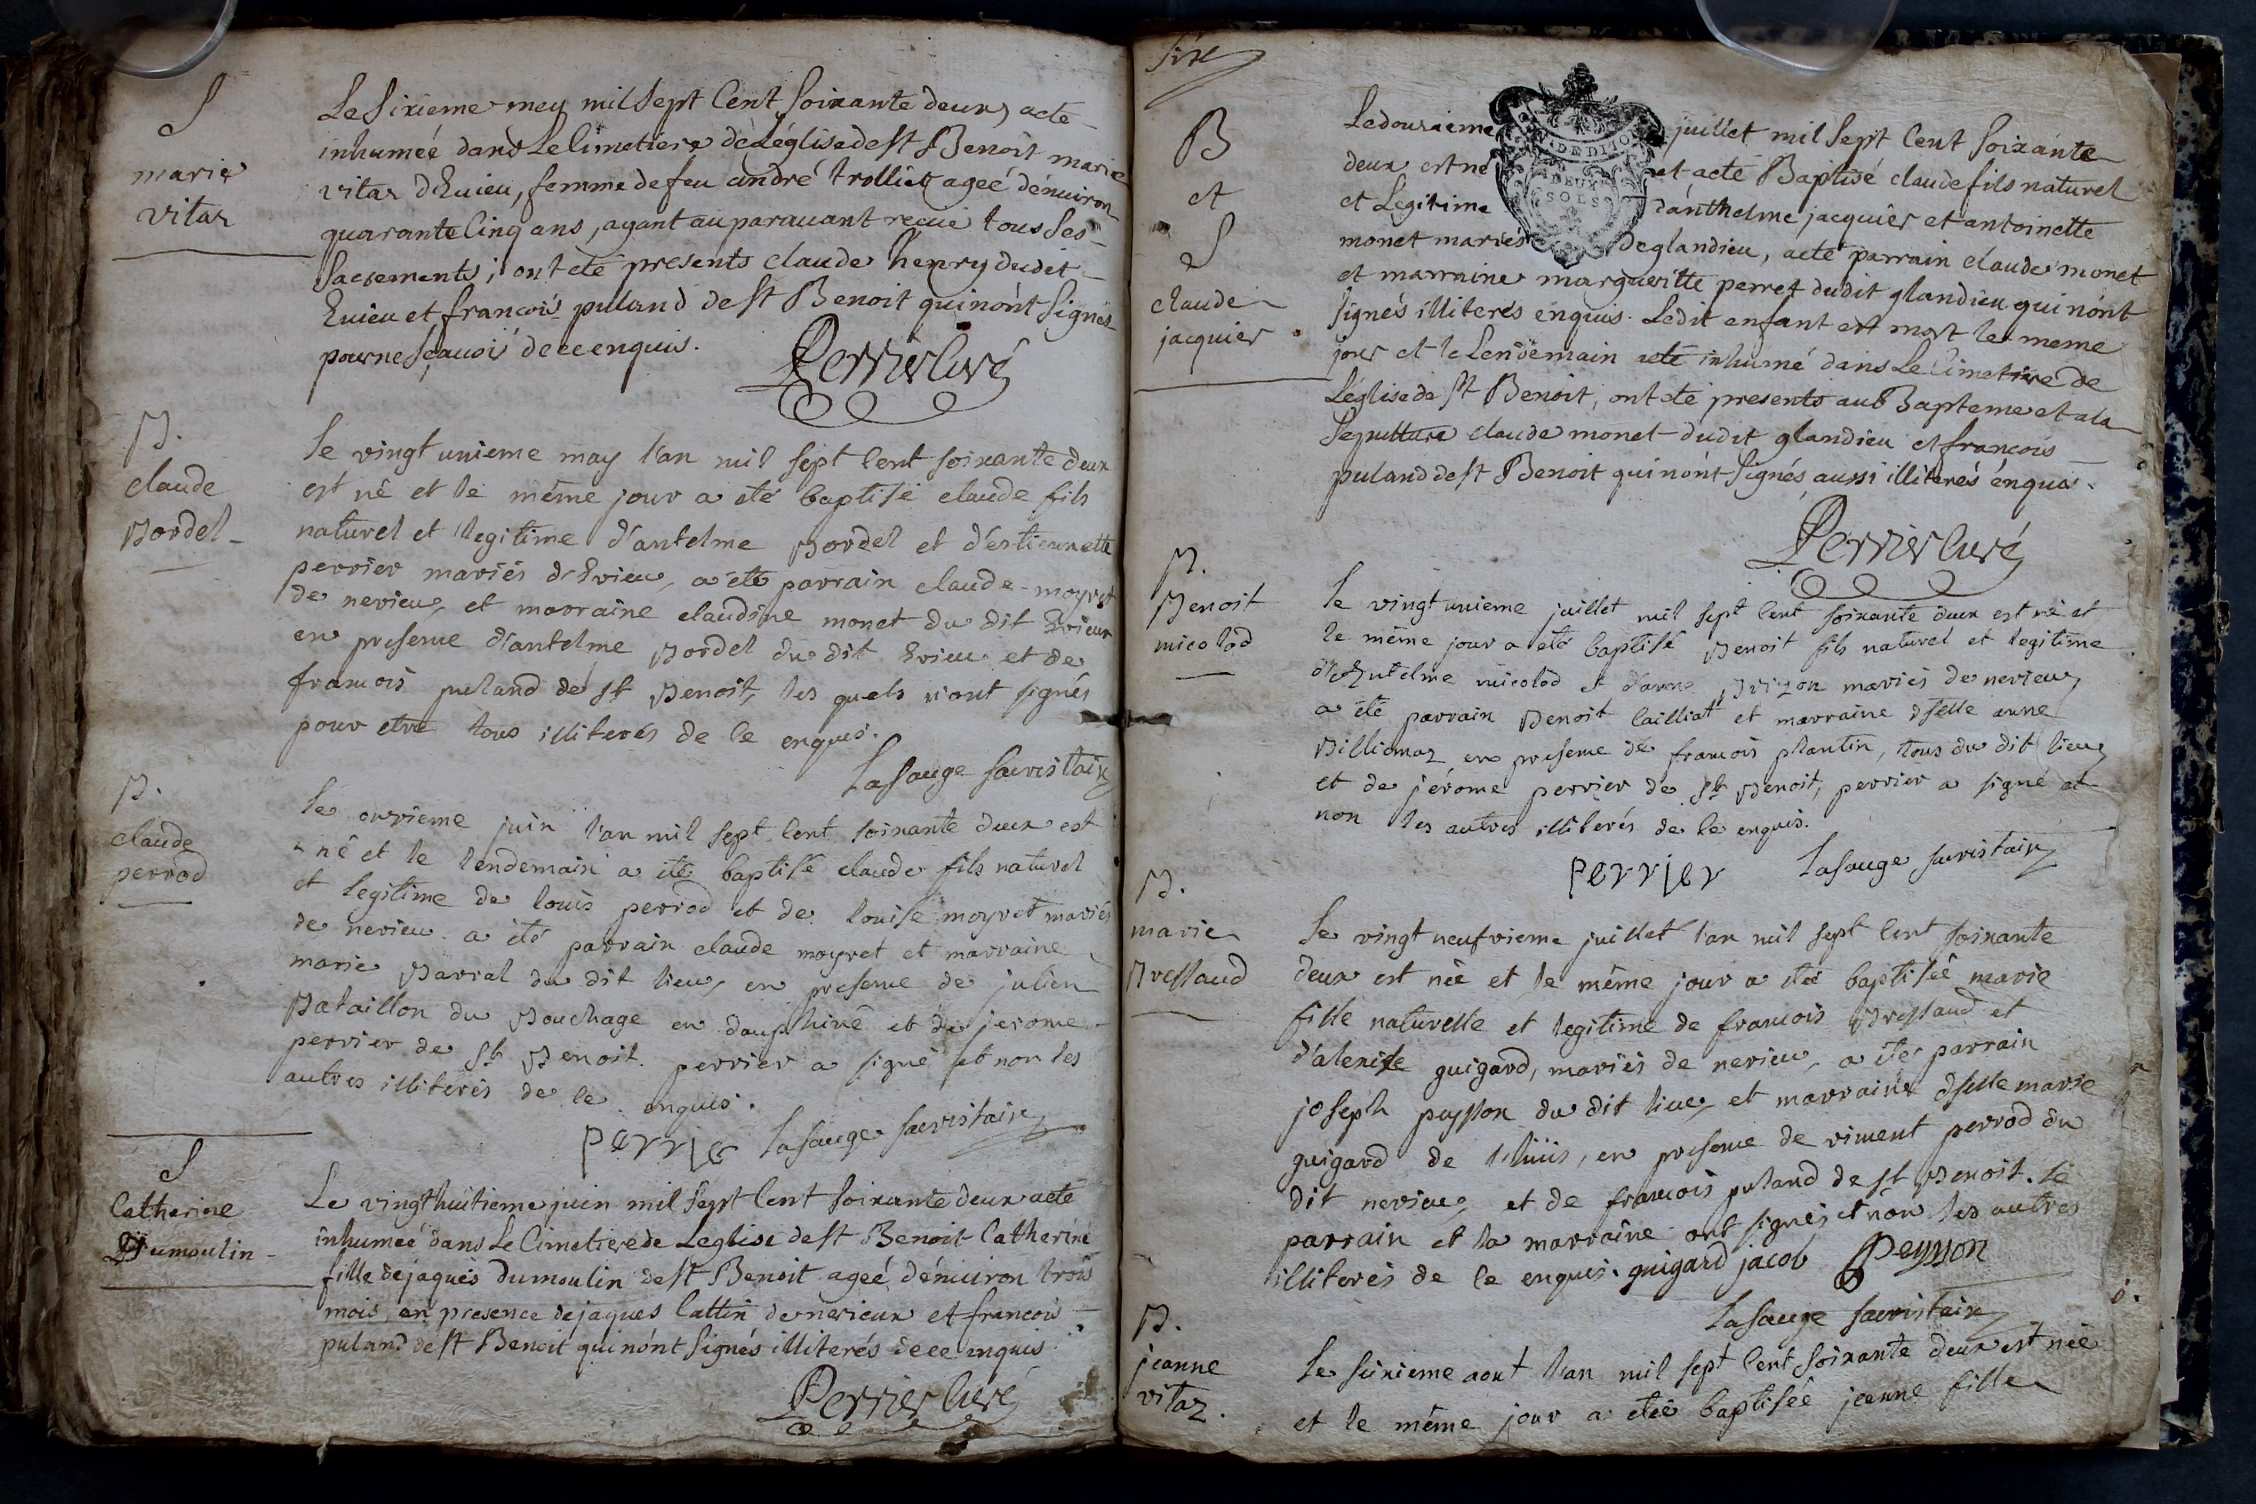 S
marie
vitaz
Le Sixieme mey mil Sept Cent Soixante deux, aeté
inhumée dans Le Cimetiere de L'église de st Benoit marie
vitaz d'Evieu, femme de feu andré trolliet ageé d'environ
quarante Cinq ans, ayant auparavant reçue tous Ses
Sacrements; ont eté presents claude henry dudit
Evieu et françois puland de st Benoit qui n'ont Signés
pour ne Sçavoir de ce enquis.
Perrier Curé
B.
claude
Bordel
le vingt unieme may l'an mil sept Cent soixante deux
est né et le même jour a été baptisé claude fils
naturel et legitime d'antelme Bordel et d'estiennette
perrier mariés d'Evieu, a été parrain claude moyret
de nerieu, et marraine claudine monet du dit Evieux
en presence d'antelme Bordel du dit Evieu et de
francois puland de st Benoit, les quels n'ont signés
pour etre tous illiterés de ce enquis.
Lasauge sacristain
B.
claude
perrod
le onzieme juin l'an mil sept Cent soixante deux est
né et le lendemain a été baptisé claude fils naturel
et legitime de louis perrod et de louise moyret mariés
de nerieu a été parrain claude moyret et marraine
marie Barral du dit lieu, en presence de julien
Bataillon du Bouchage en dauphiné et de jerome
perrier de st Benoit. perrier a signé et non les
autres illiterés de ce enquis.
perrier Lasauge sacristain
S
Catherine
Dumoulin
Le vingt huitieme juin mil Sept Cent Soixante deux aeté
inhumée dans Le Cimetiere de Leglise de st Benoit Catherine
fille de jaques Dumoulin de st Benoit ageé d'environ trois
mois, en presence de jaques Cattin de nerieux et francois
puland de st Benoit qui n'ont Signés illiterés de ce enquis.
Perrier Curé
B
et
S
claude
jacquier
GEN DE DIJON
DEUX
SOLS
Le douzieme juillet mil Sept Cent Soixante
deux est né et aeté Baptisé claude fils naturel
et Legitime d'anthelme jacquier et antoinette
monet mariés de glandieu, aeté parrain claude monet
et marraine margueritte perret dudit glandieu qui n'ont
Signés illiterés enquis. Ledit enfant est mort le meme
jour et le Lendemain aeté inhumé dans Le Cimetiere de
L'église de st Benoit, ont eté presents au Bapteme et a la
Sepulture claude monet dudit glandieu et francois
puland de st Benoit qui n'ont Signés aussi illiterés énquis.
Perrier Curé
B.
Benoit
micolod
le vingt unieme juillet mil sept Cent soixante deux est né et
le même jour a été baptisé Benoit fils naturel et legitime
d'Antelme micolod et d'anne Brizon mariés de nerieu,
a été parrain Benoit Cailliat et marraine dselle anne
Billiomaz en presence de francois plantin, tous du dit lieu,
et de jérome perrier de st Benoit, perrier a signé et
non les autres illiterés de ce enquis.
perrier Lasauge sacristain
B.
marie
Bressaud
Le vingt neufvieme juillet l'an mil sept Cent soixante
deux est née et le même jour a été baptisée marie
fille naturelle et legitime de francois Bressaud et
guigard, mariés de nerieu, a été parrain
joseph peysson du dit lieu, et marraine dselle marie
guigard de lhuis, en presence de vincent perrod du
dit nerieu, et de francois puland de st Benoit. le
parrain et la marraine ont signés et non les autres
illiterés de ce enquis. guigard jacob Peysson
Lasauge sacristain
B.
jeanne
vitaz.
le sixieme aout l'an mil sept Cent soixante deux est née
et le même jour a été baptisée jeanne fille